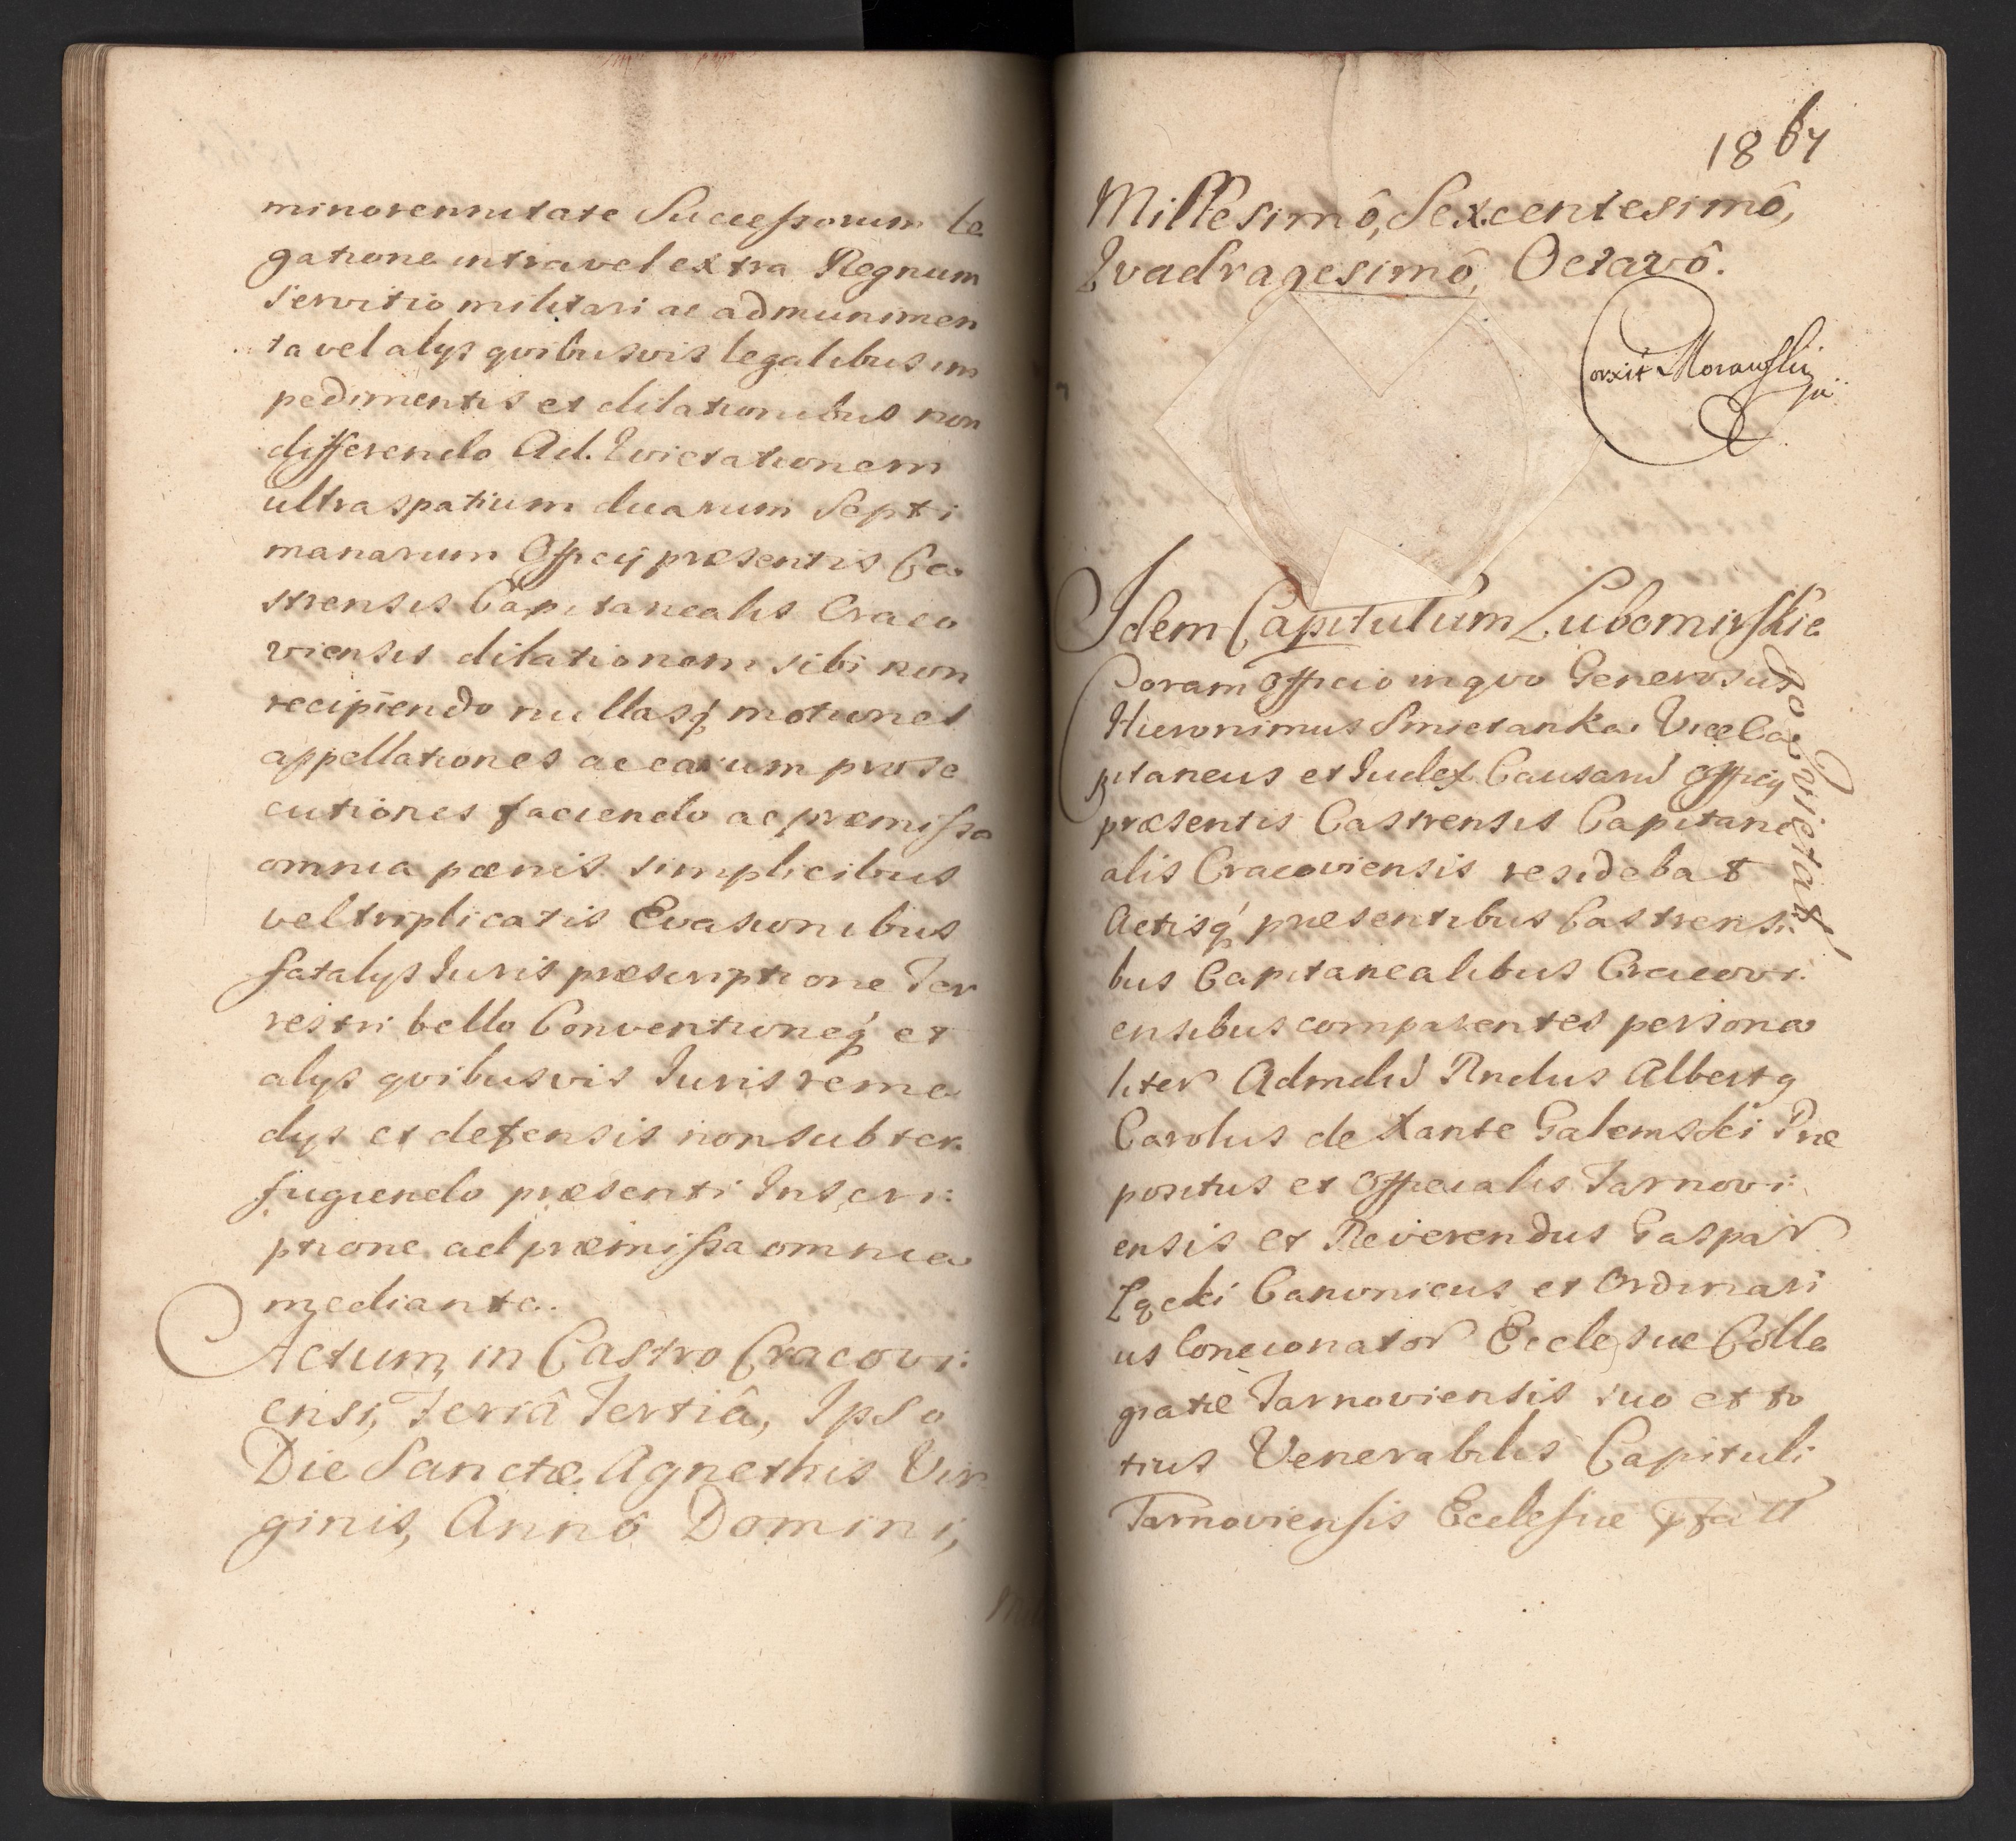 minorennitate Successorum le
gatione intra vel extra Regnum
servitio militari ac ad munimen
ta vel alys qvibusvis legalibus im
pedimentis et dilationibus non
differendo Ad. Evictationem
ultra spatium duarum Septi
manarum Officy præsentis Ca
strensis Capitanealis Craco
viensis dilationem sibi non
recipiendo nullasq́ motiones
appellationes ac earum prose
cutiones faciendo ac præmissa
omnia pœnis simplicibus
vel triplicatis Evasionibus
fatalys Iuris præscriptione Ter
restri bello Conventioneq́ et
alys qvibusvis Iuris reme
dys et defensis non subter
fugiendo præsenti Inscri:
ptione ad præmissa omnia
mediante.
Actum in Castro Cracovi:
ensi, Feriâ Tertiâ, Ipso
Die Sanctæ Agnethis Vir
ginis, Anno Domini,
1867
Millesimô, Sexcentesimô,
Qvadragesimô, Octavô.
Corxit Morawski
Idem Capitulum Lubomirskie
Roborvictat
Coram Officio in qvo Generosus
Hieronimus Smietanka ViceCa
pitaneus et Iudex Causarũ Officy
præsentis Castrensis Capitane
alis Cracoviensis residebat
Actisq́ præsentibus Castrensi
bus Capitanealibus Cracovi:
ensibus comparentes persona
liter Admdũ Rndus Albertq
Carolus de Xante Galemski Præ
positus et Officialis Tarnovi:
ensis et Reverendus Gaspar
Canonicus et Ordinari
us Concionator Ecclesiæ Colle
giatæ Tarnoviensis suo et to
tius Venerabilis Capituli
Tarnoviensis Ecclesiæ